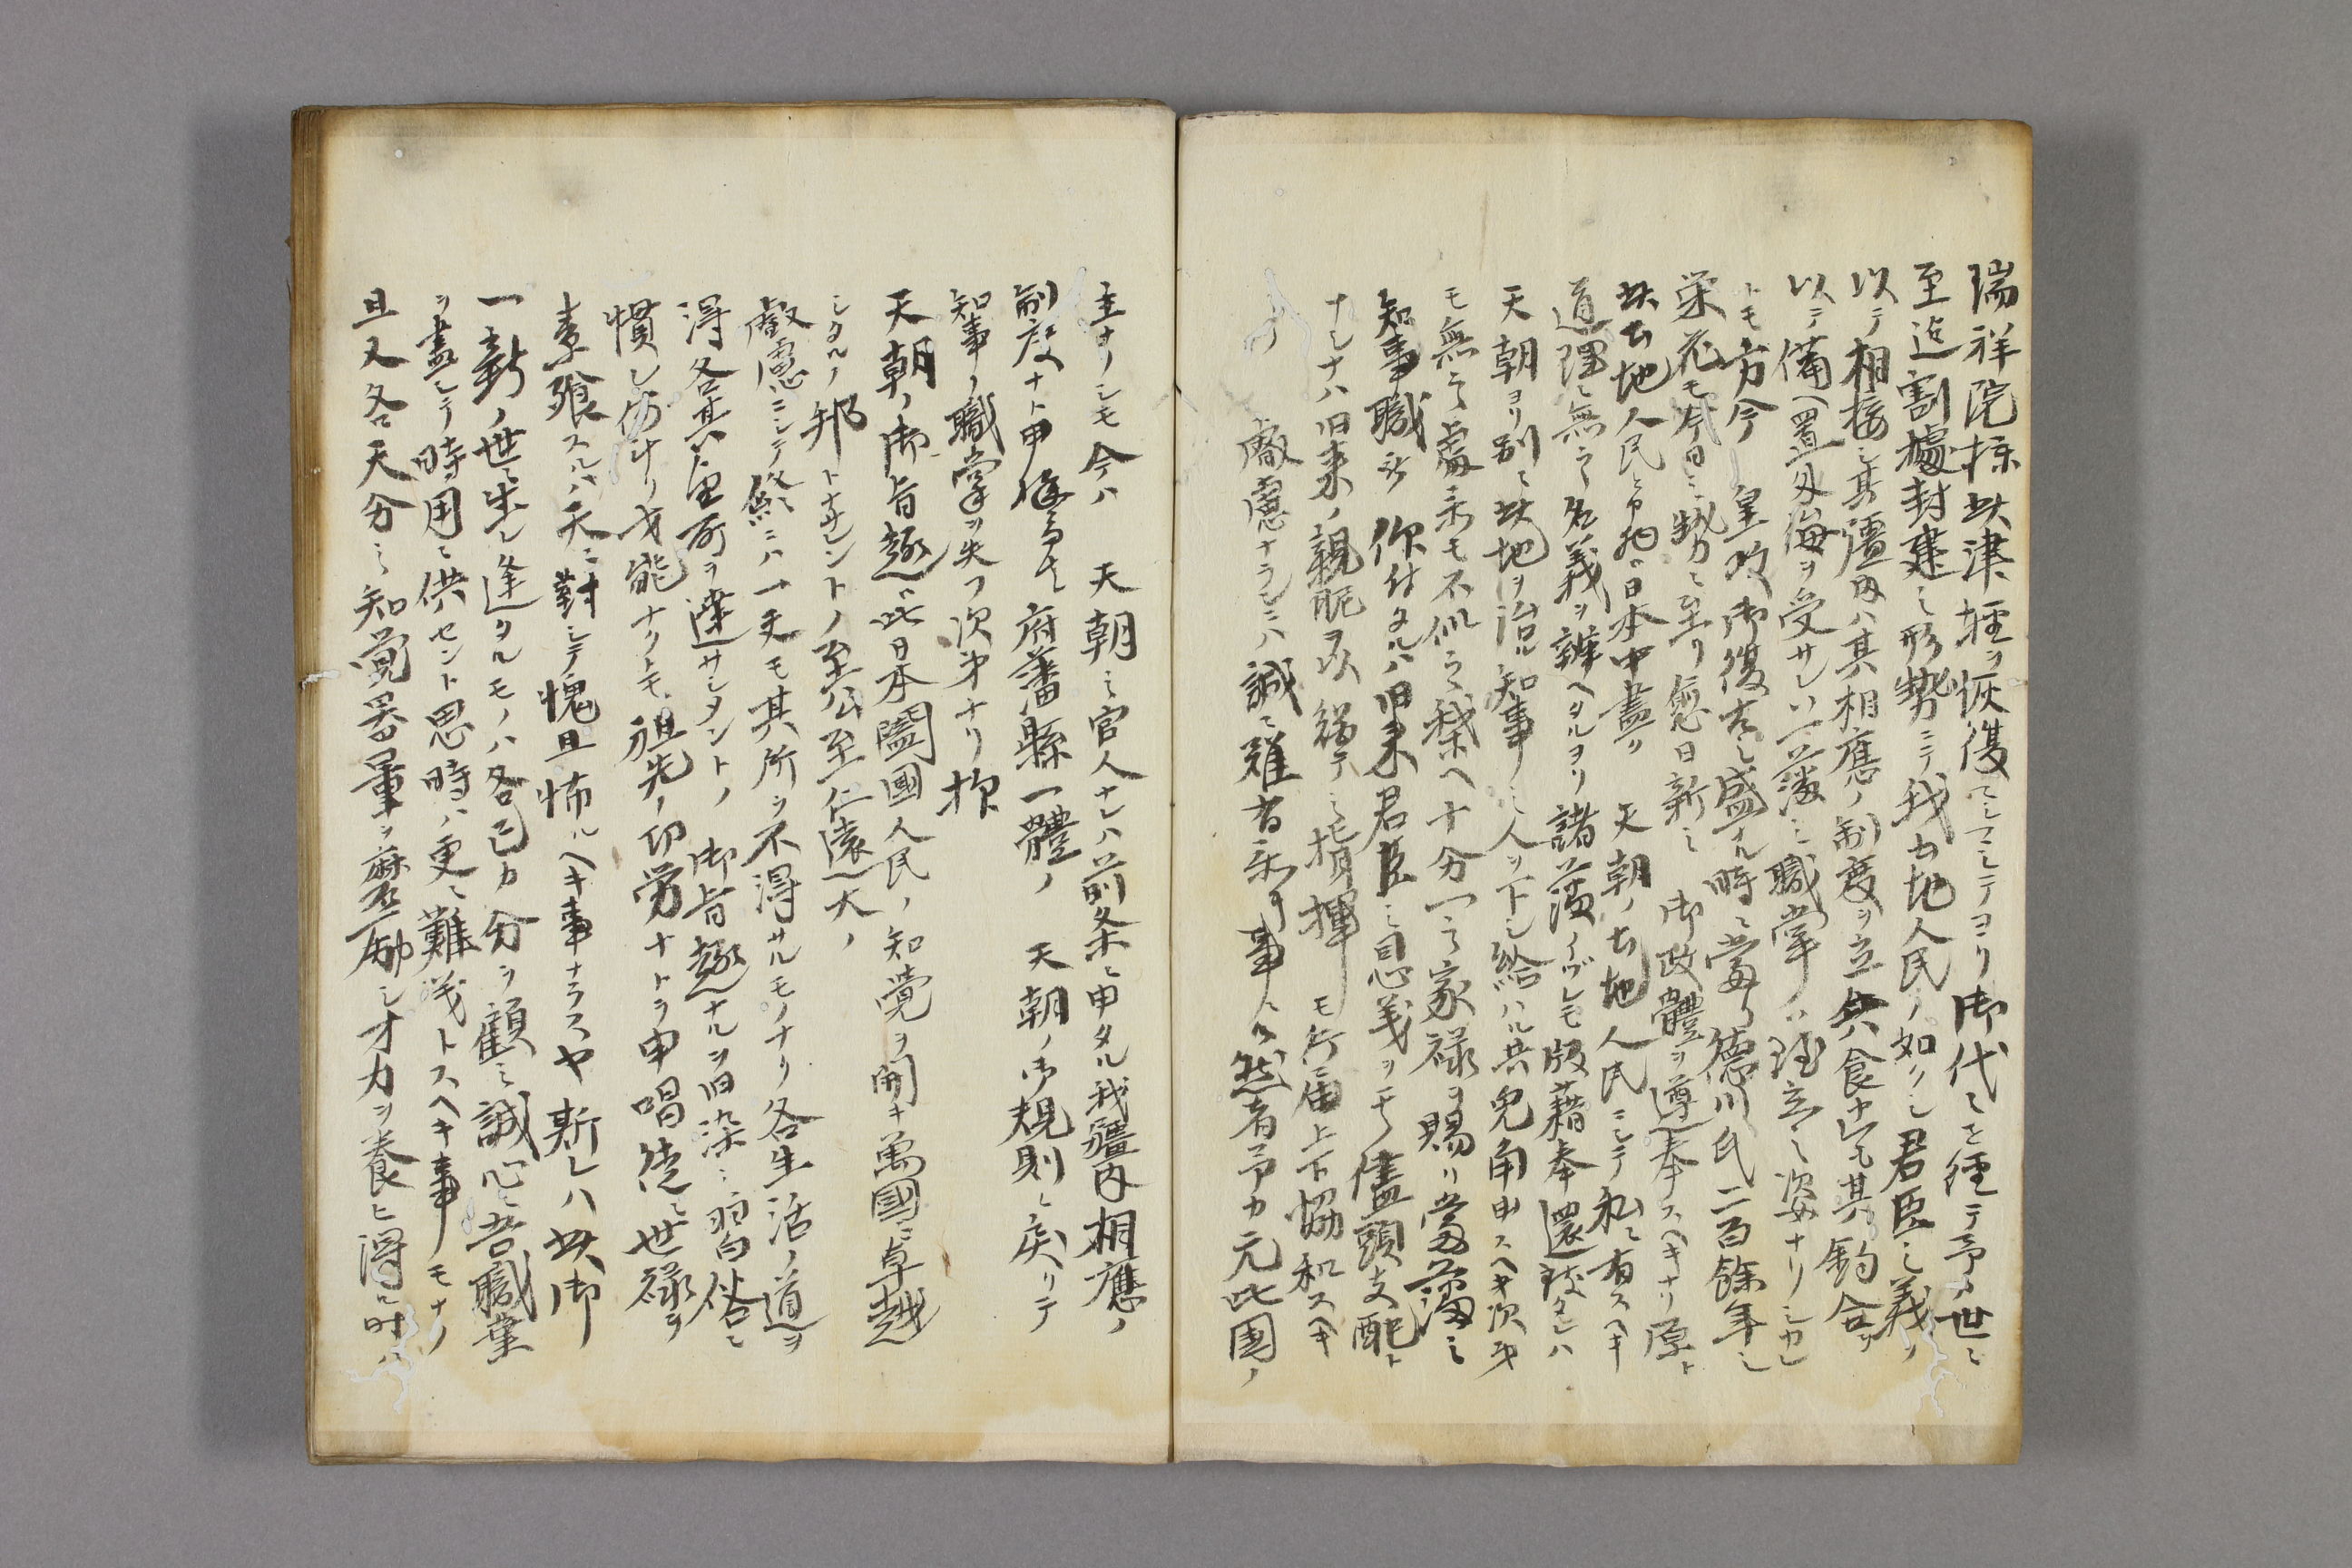 瑞祥院様此津軽ヲ恢復マシマシテヨリ御代々ヲ経テ予カ世ニ
至迄割據封建之形勢ニテ我土地人民ノ如クシ君臣之義ヲ
以テ相接シ其疆内ハ其相應ノ制度ヲ立兵食共其釣合ヲ
以テ備ヘ置外侮ヲ受サレハ一藩之職掌ハ相立之姿ナリシカレ
トモ方今 皇政御復古之盛ナル時ニ當リ徳川氏二百餘年之
栄花モ今日之勢カニ至リ愈日新之 御政體ヲ遵奉スヘキナリ原ト
此土地人民ト申ハ日本中盡ク 天朝ノ土地人民ニシテ私ニ有スヘキ
道理ハ無之名義ヲ辨ヘタルヨリ諸藩イツレモ版籍奉還致タレハ
天朝ヨリ別ニ此地ヲ治ル知事之人ヲ下シ給ハル共兎角申スヘキ次第
モ無之處予モ不似之稟ヘ十分一之家禄ヲ賜リ當藩之
知事職被 仰付タルハ旧来君臣之恩義ヲモテ儘頭支配ト
ナシナハ旧来ノ親昵ヲ以総テ之指揮モ行届上下協和スヘキ
ノ 叡慮ナラムニハ誠ニ難有希事ニ候然者予カ元此国ノ
主ナリシモ今ハ 天朝之官人ナレハ前条ニ申タル我疆内相應ノ
制度ナト申唱候テモ府藩縣一體ノ 天朝ノ御規則ニ戻リテ
知事ノ職掌ヲ失フ次第ナリ抑
天朝ノ御旨趣ハ此日本闔國人民ノ知覺ヲ開キ萬國ニ卓越
シタルノ邦トナサシントノ至公至仁遠大ノ
叡慮ニシテ終ニハ一夫モ其所ヲ不得サルモノナリ各生活ノ道ヲ
得各其宜所ヲ達サシメントノ 御旨趣ナルヲ旧染之習俗ニ
慣レ彷ナリ才能ナクトモ祖先ノ功労ナトヲ申唱徒ニ世禄ヲ
素飡スルハ天ニ對シテ愧且怖ルヘキ事ナラスヤ斯レハ此御
一新ノ世ニ生レ逢タルモノハ各己カ分ヲ顧ミ誠心ニ吾職業
ヲ盡シテ時用ニ供セント思時ハ更ニ難義トスヘキ事モナク
且又各天分之知覺器量ヲ磨励シ才力ヲ養ヒ得ル時ハ